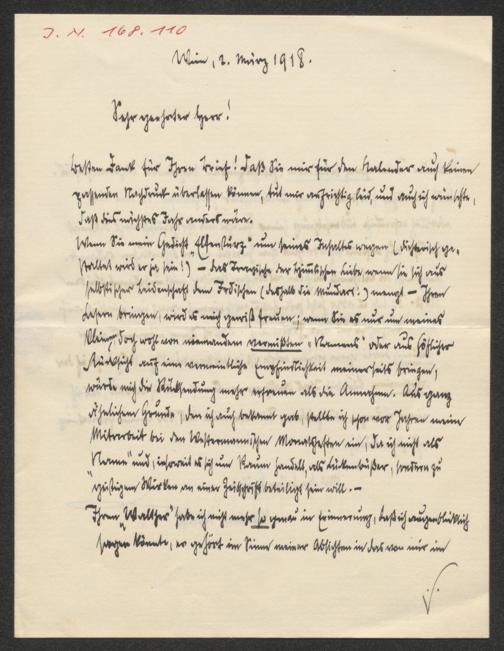 J. N. 168.110
Wien, 2. März 1918.
Sehr geehrter Herr!
Besten Dank für Ihren Brief! Daß Sie mir für den Kalender auch keinen
passenden Nachdruck überlassen können, tut mir aufrichtig leid, und auch ich wünschte,
daß dies nächstes Jahr anders wäre.
Wenn Sie mein Gedicht „Elfensturz" um seines Inhaltes wegen (dichterisch ge-
staltet wird er ja sein!) – das Tragische der himmlischen Liebe, wenn sie sich aus
selbstischer Leidenschaft dem Irdischen (deshalb die Mundart!) mengt – Ihren
Lesern bringen, wird es mich gewiß freuen; wenn Sie es nur um meines
doch wohl von niemanden vermißten „Namens" oder aus höflicher
Rücksicht auf eine vermeintliche Empfindlichkeit meinerseits bringen,
würde mich die Rücksendung mehr erfreuen als die Annahme. Aus ganz
ähnlichem Grunde, den ich auch bekannt gab, stellte ich schon vor Jahren meine
Mitarbeit bei den Westermannschen Monatsheften ein, da ich nicht als
„Name" und, insoweit es sich um Raum handelt, als Lückenbüßer, sondern zu
geistigem Wirken an einer Zeitschrift beteiligt sein will. –
Ihren „Walther" habe ich nicht mehr so genau in Erinnerung, daß ich augenblicklich
sagen könnte, er gehört im Sinne meiner Absichten in das von mir im